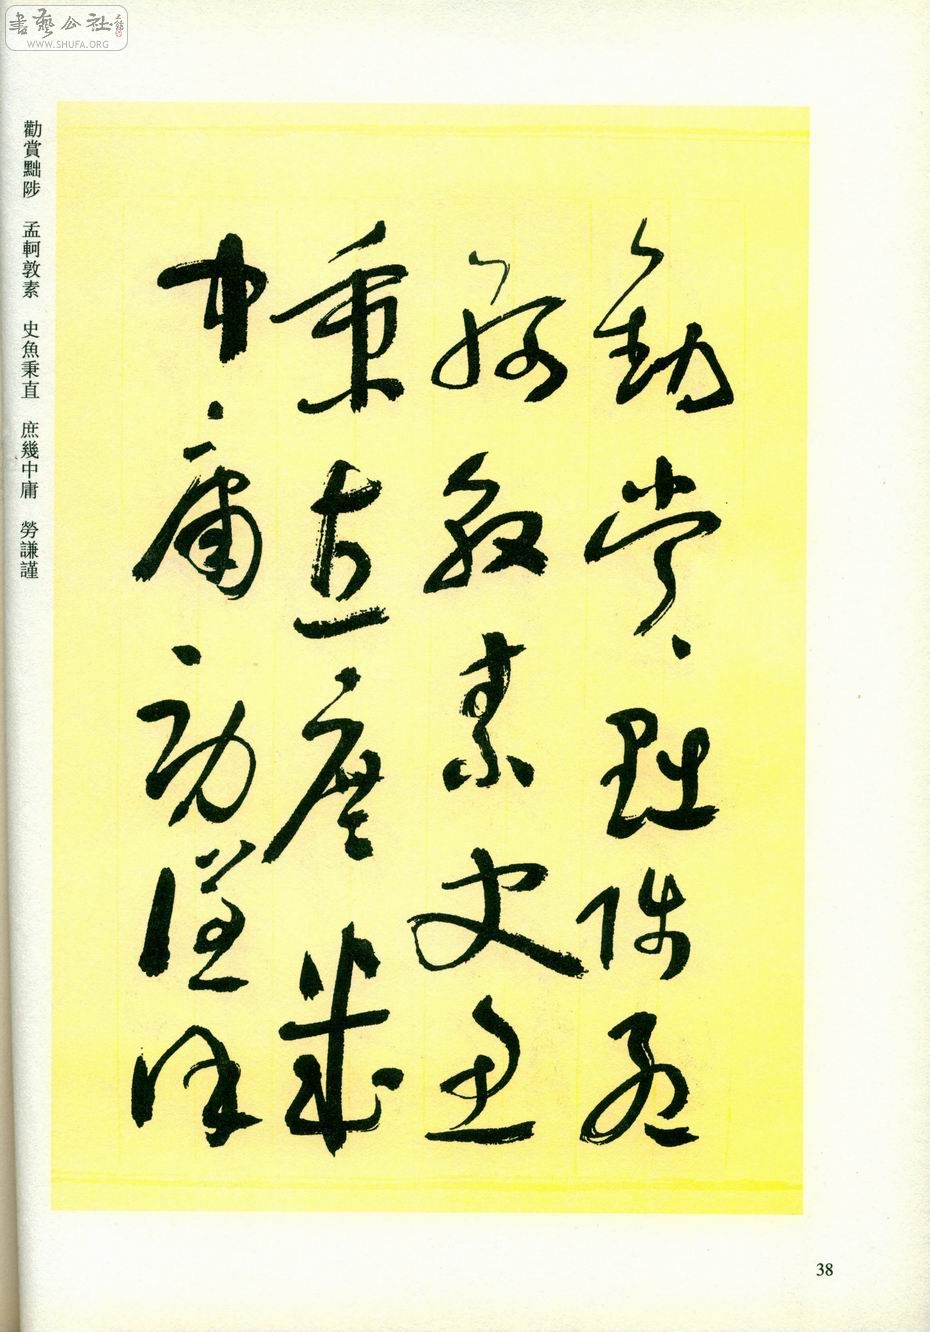 書藝公社
WWW.SHUFA.ORG
勸賞黜陟孟
軻敦素史魚
秉直庶幾
中庸勞謙謹
勸賞黜陟 孟軻敦素 史魚秉直 庶幾中庸 勞謙謹
38